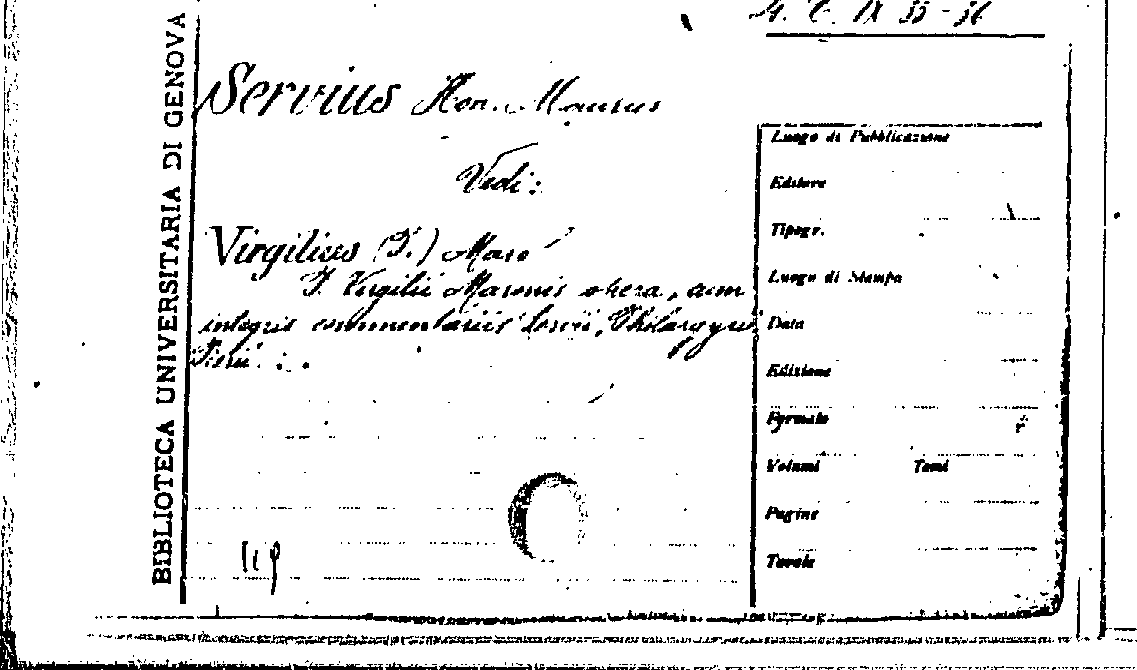 4. C. IX 35-36
BIBLIOTECA UNIVERSITARIA DI GENOVA
Servius Hon. Maurus
Vedi:
Virgilius (P.) Maro
P. Virgilii Maronis opera, cum
integris commentariis Servii, Philargyri
Pierii
Luogo di Pubblicazione
Editore
Tipogr.
Luogo di Stampa
Data
Edizione
Formato
Volumi Tomi
Pagine
Tavole